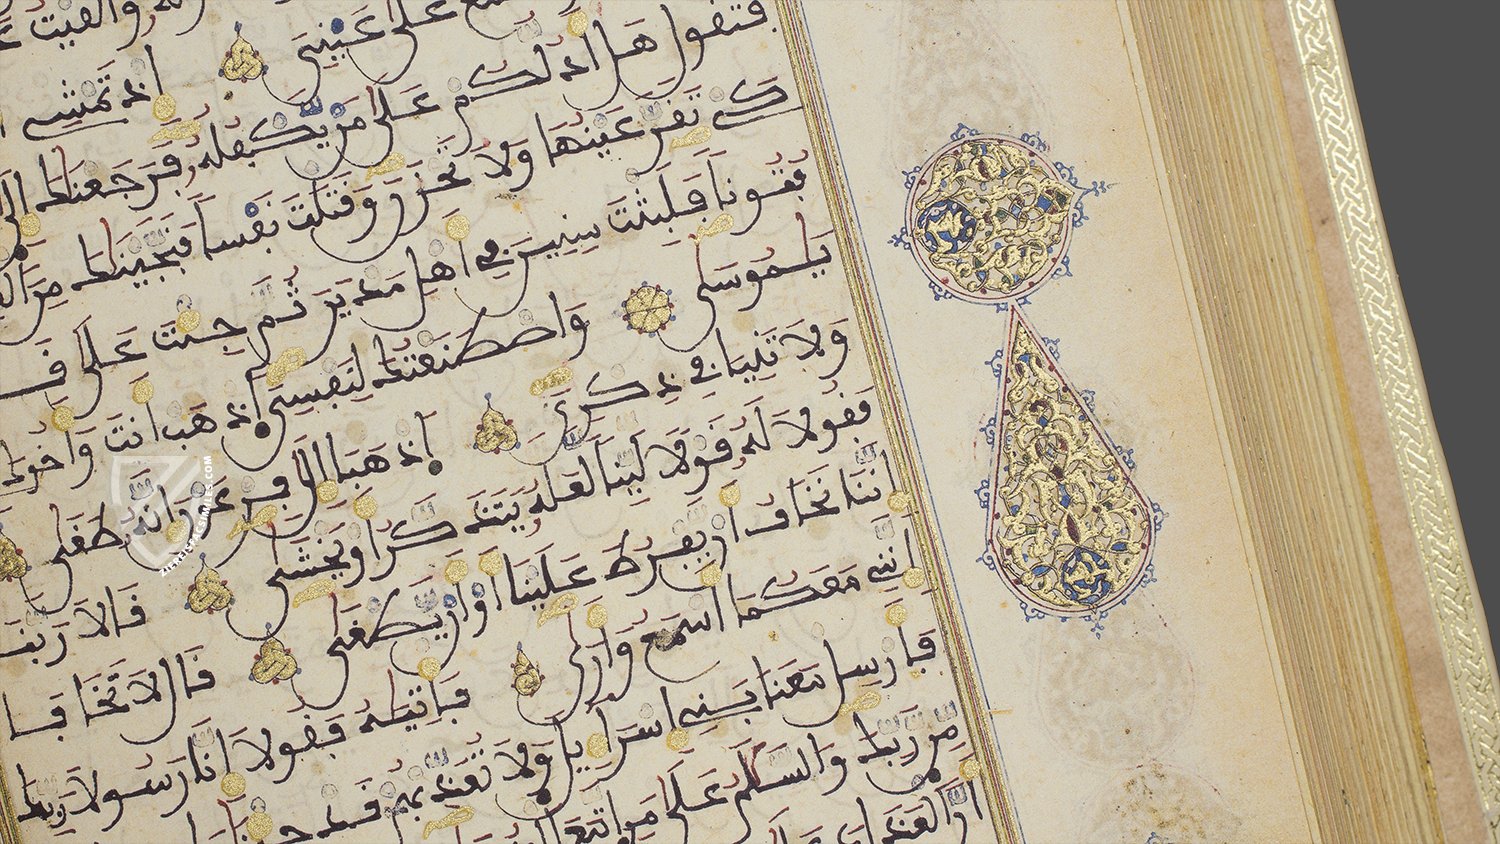 والقيت
على عيني اذ تمشي
فتقول هل ادلكم على من يكفله فرجعنك الى
كي تقر عينها ولا تحزن وقتلت نفسا فنجينك من
فتونا فلبثت سنين في اهل مدين ثم جئت على
يموسى واصطنعتك لنفسي اذهب انت واخوك
ولا تنيا في ذكري اذهبا الى فرعون انه طغى
فقولا له قولا لينا لعله يتذكر او يخشى قالا ربنا
اننا نخاف ان يفرط علينا او ان يطغى قال لا تخافا
انني معكما اسمع وارى فاتيه فقولا انا رسولا ربك
فارسل معنا بني اسراءيل ولا تعذبهم قد
من ربك والسلم على من اتبع
ان العذاب
ZIEREISFACSIMILES.COM